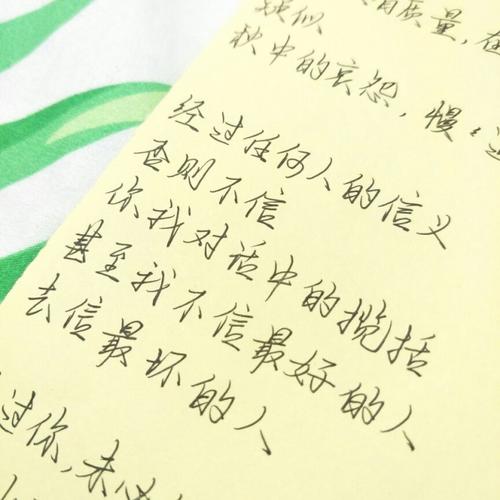 质量,在
疑似
秋中的哀怨,慢慢
经过任何人的信义
否则不信
你我对话中的揽括
甚至我不信最好的人
去信最坏的人
过你,未